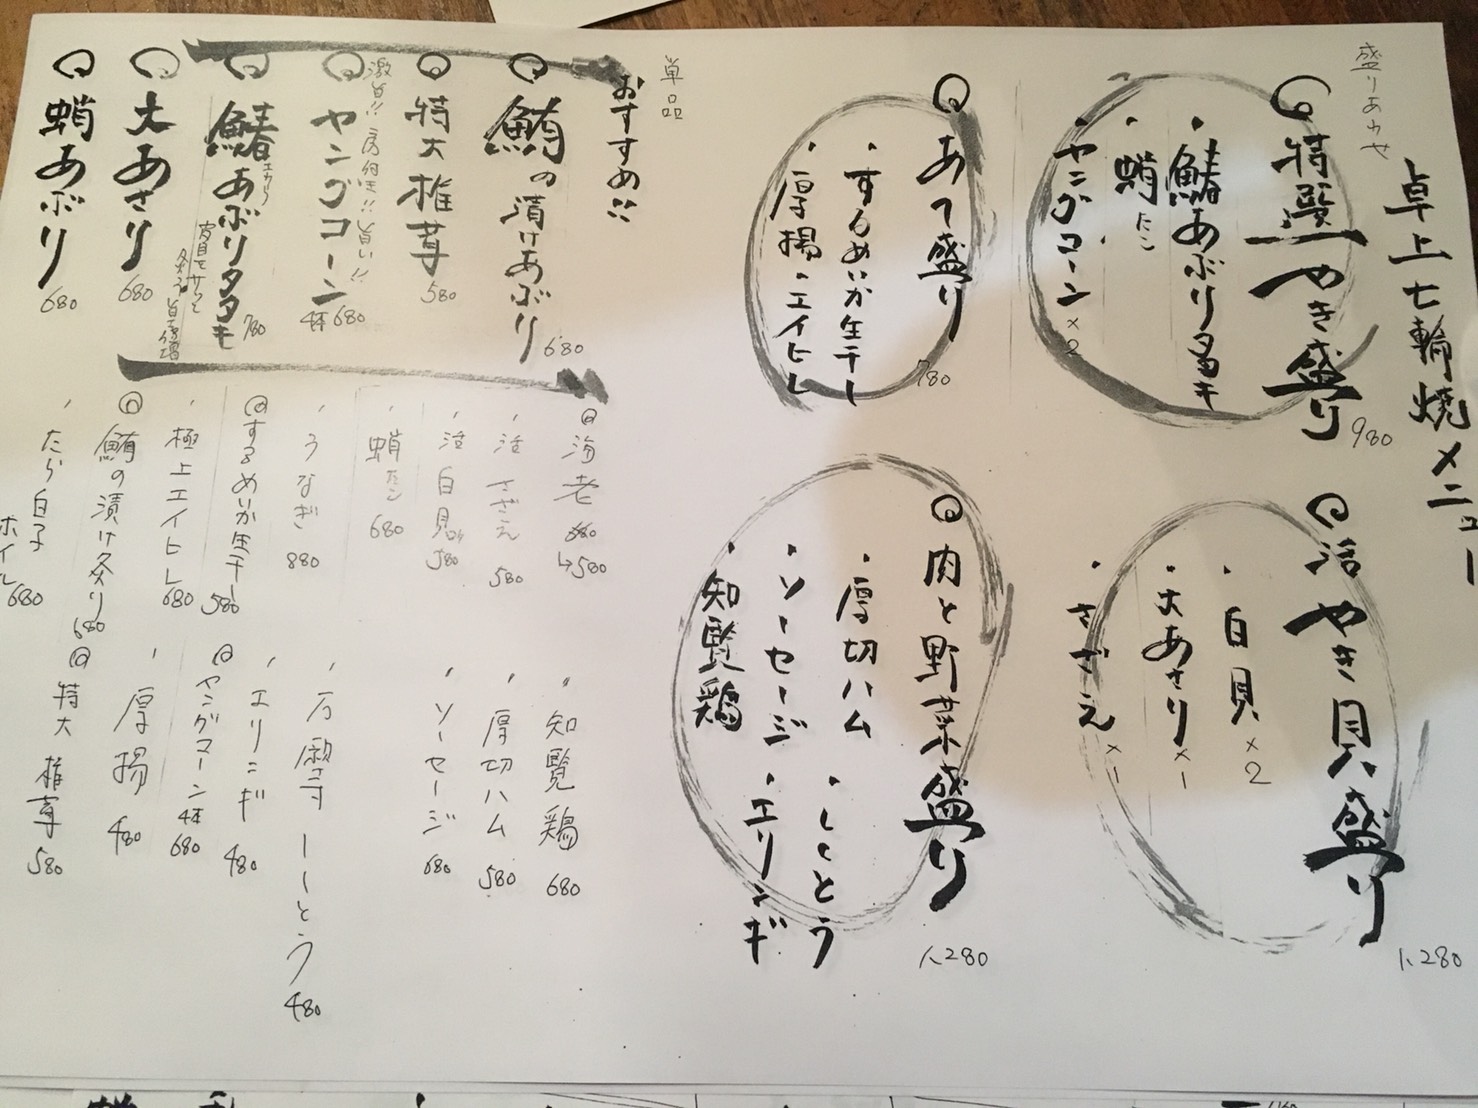 卓上七輪焼メニュー
盛りあわせ
特選やき盛り
980
・鰆あぶりタタキ
・蛸たこ
・ヤングコーン×2
あて盛り
780
・するめいか生干し
・厚揚・エイヒレ
活やき貝盛り
1,280
・白貝×2
・大あさり×1
・さざえ×1
肉と野菜盛り
1,280
・厚切ハム
・ししとう
・ソーセージ
・エリンギ
知覧鶏
単品
おすすめ!!
鮪の漬けあぶり 680
特大椎茸 580
激旨!!房付生!!旨い!!
ヤングコーン 4本 680
鰆あぶりタタキ 780
大あさり 680
蛸あぶり 680
海老 680→580
・活さざえ 580
・活白貝 580
・蛸たこ 680
・うなぎ 880
するめいか生干し 580
・極上エイヒレ 680
鮪の漬け炙り 680
・たら白子ホイル 680
・知覧鶏 680
・厚切ハム 580
・ソーセージ 680
・万願寺ししとう 480
・エリンギ 480
ヤングコーン 4本 680
・厚揚 480
特大椎茸 580